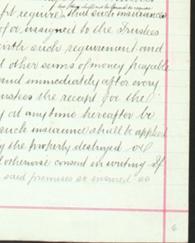 ft require that such insurances
of or assigned to the Trustees
with such requirement and
l other sums of money payable
and immediately after every
ustees the receipt for the
y at any time hereafter be
such insurance shall be applied
g the property destroyed or
otherwise consent in writing If
said premises so insured as
6